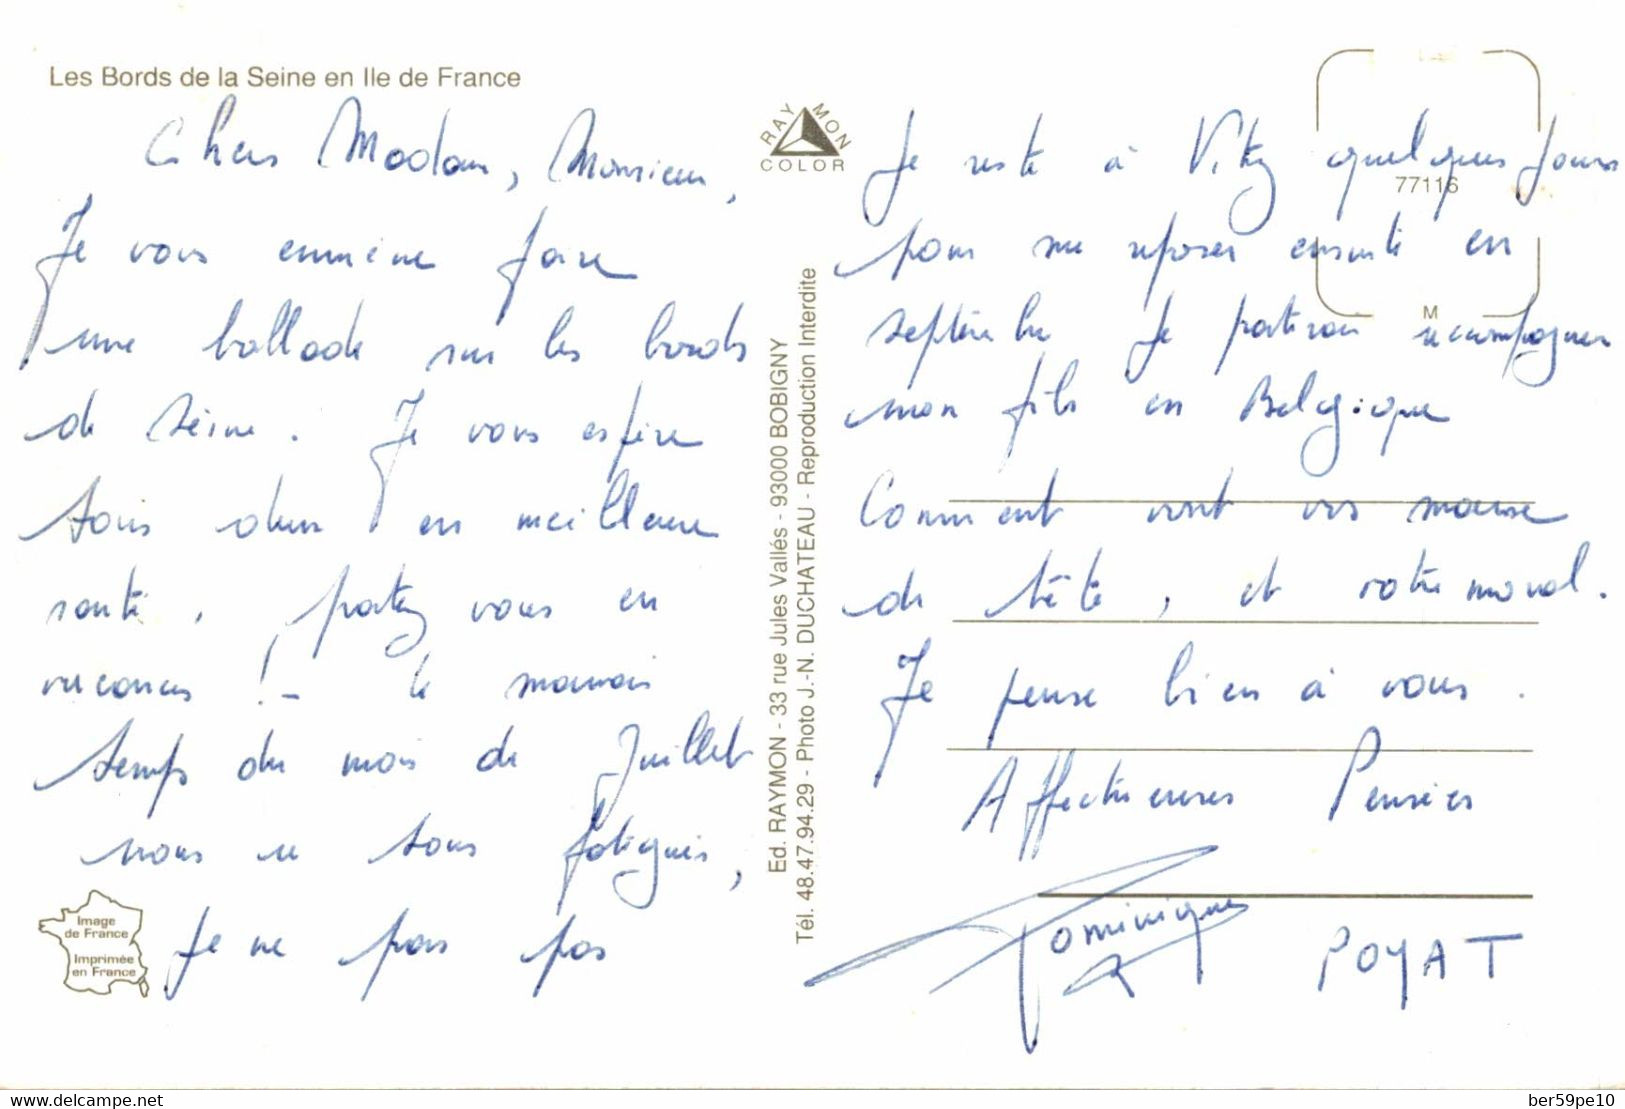 Les Bords de la Seine en Ile de France
Chers Madam, Monsieur,
Je vous emmène faire
une ballade sur les bords
de Seine. Je vous espère
tous deux en meilleure
santé. partez vous en
vacances ! - le mauvais
temps du mois de Juillet
nous a tous fatigués,
Je ne pars pas
Image
de France
Imprimée
en France
RAYMON
COLOR
Ed. RAYMON - 33 rue Jules Vallés - 93000 BOBIGNY
Tél. 48.47.94.29 - Photo J.-N. DUCHATEAU - Reproduction Interdite
77116
M
Je reste à Vitry quelques jours
pour me reposer ensuite en
septembre Je partirai accompagner
mon fils en Belgique
Comment vont vos maux
de tête, et votre moral.
Je pense bien à vous.
Affectueuses Pensées
Dominique
POYAT
www.delcampe.net
ber59pe10